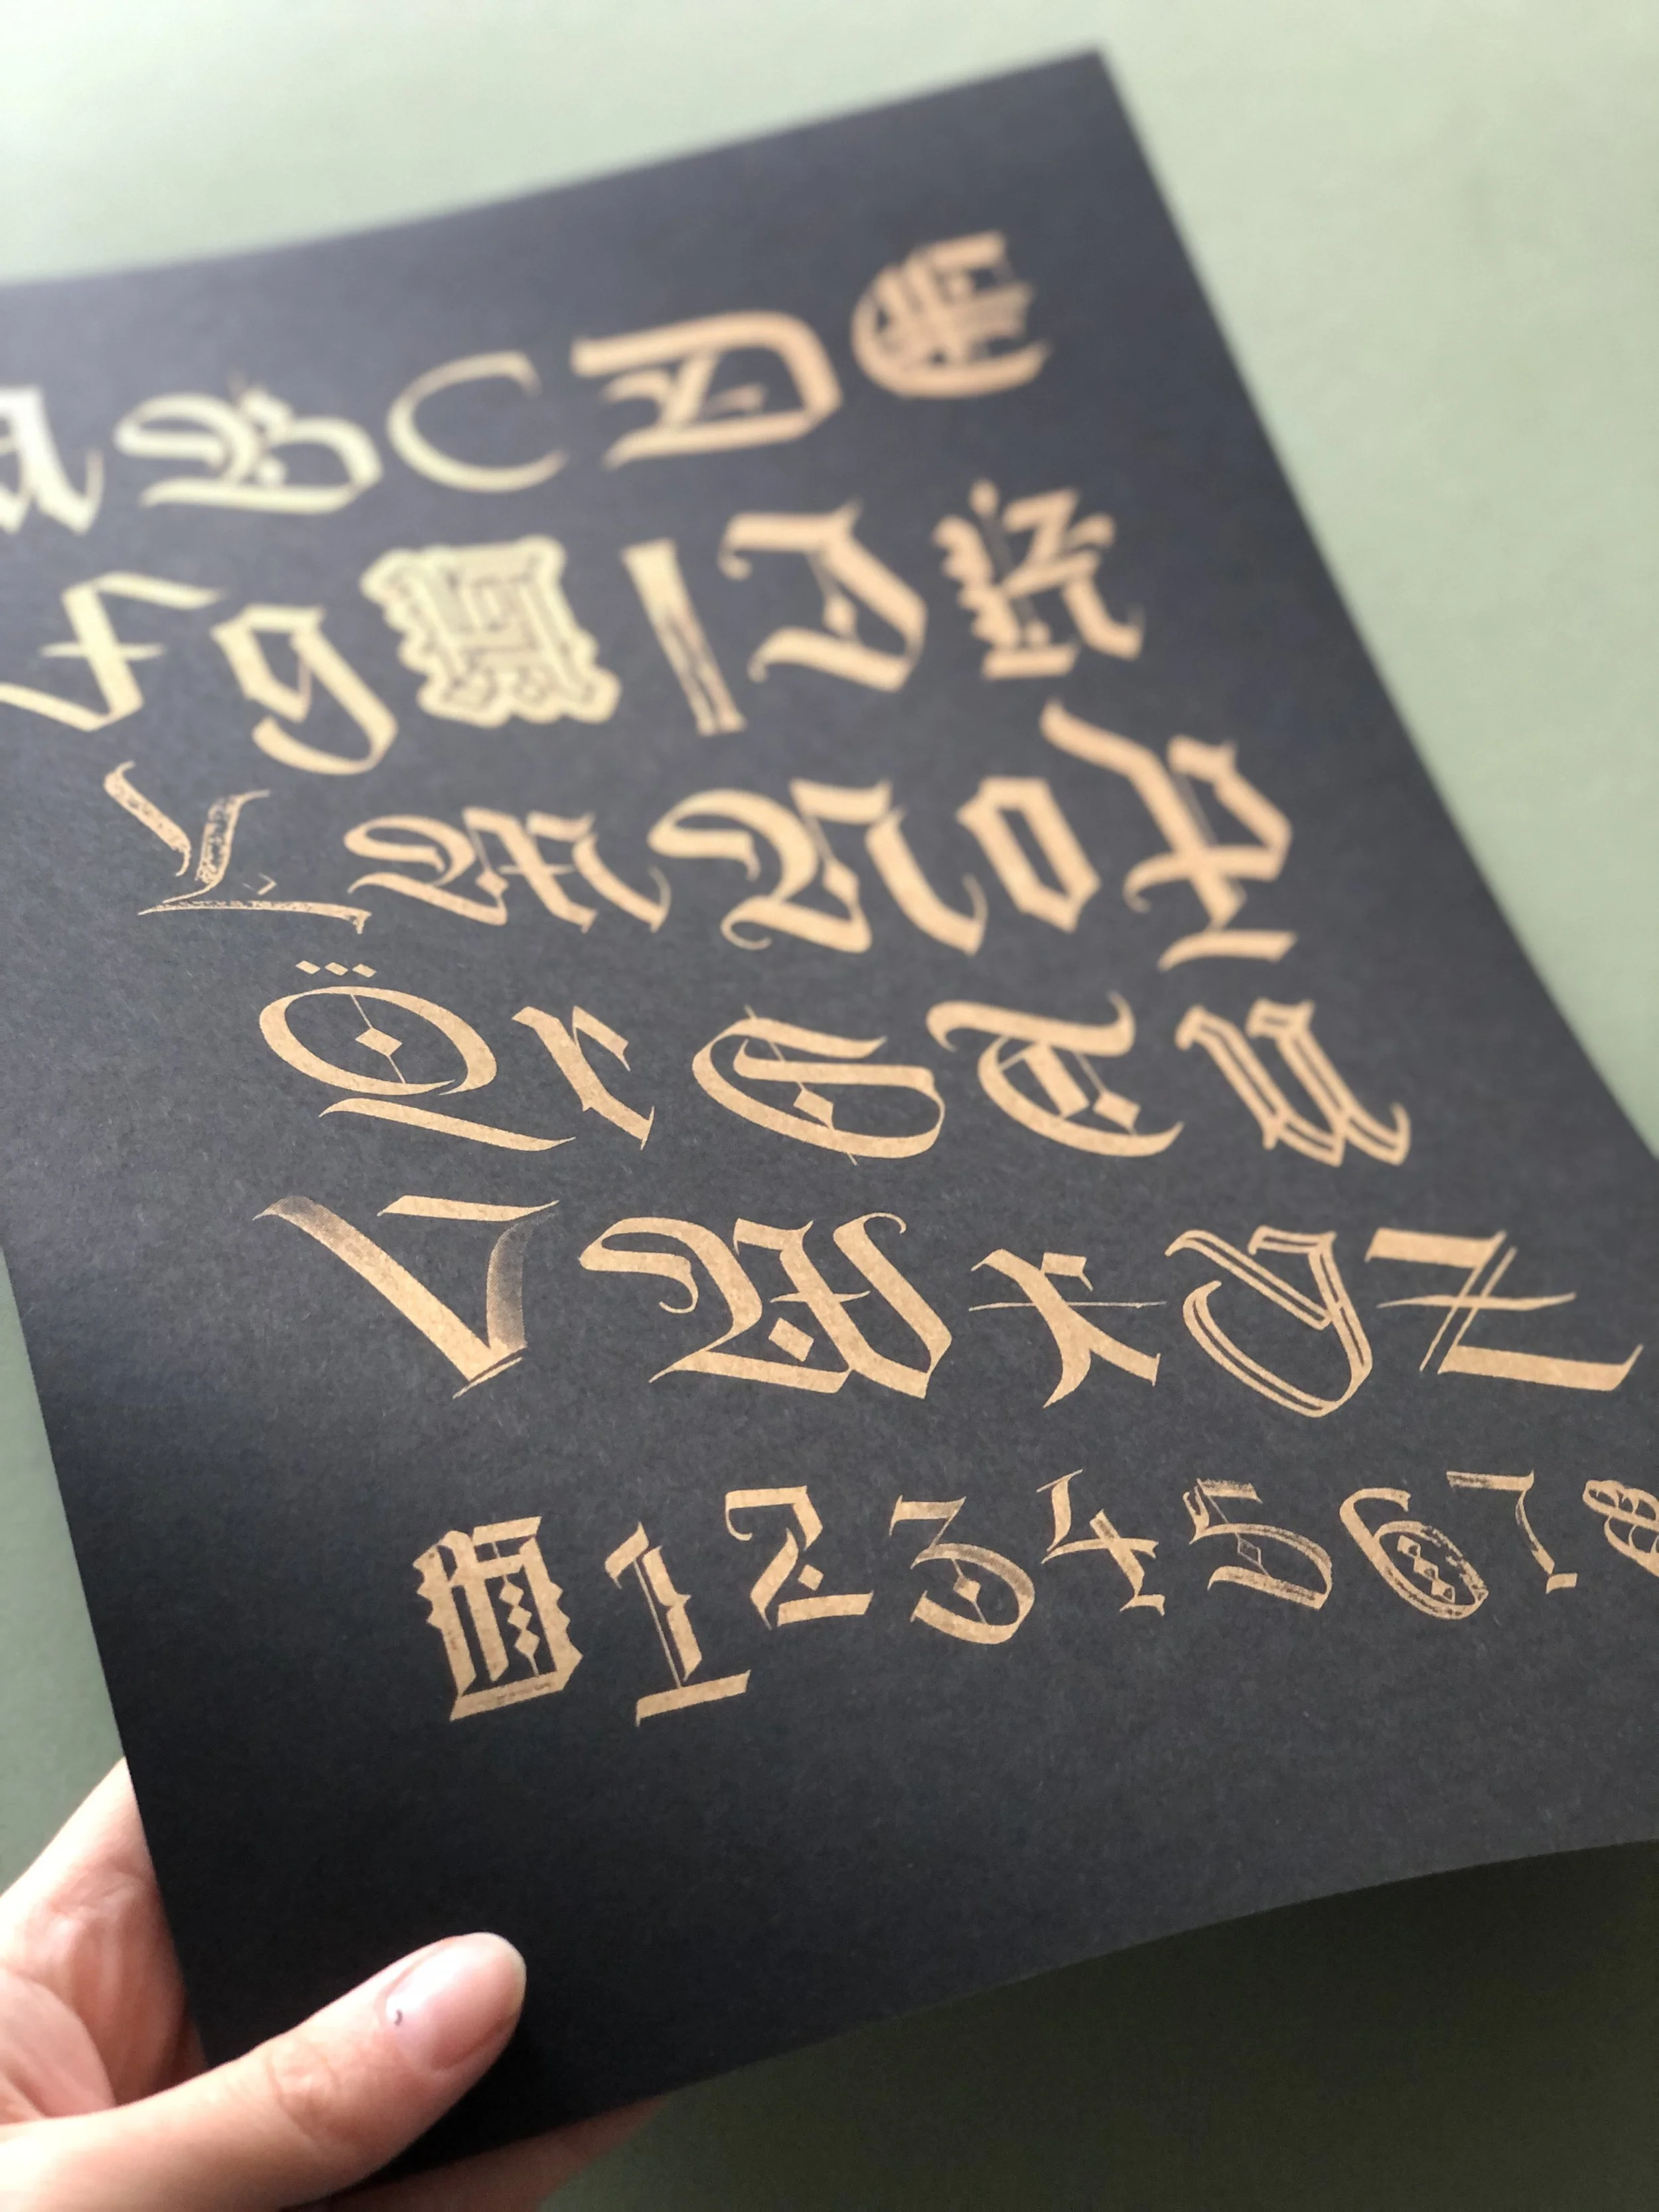 a B C D E
F g H I J K
L M N O P
Q r S T U
V W x y Z
0 1 2 3 4 5 6 7 8